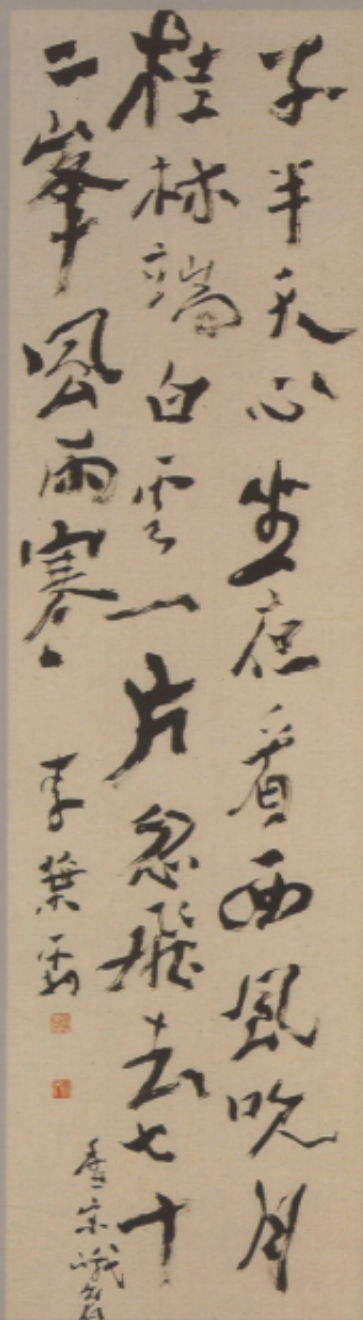 子半天心坐看西風吹月
桂林端白雲一片忽飛去七十
二峯風雨寒
李葉霜